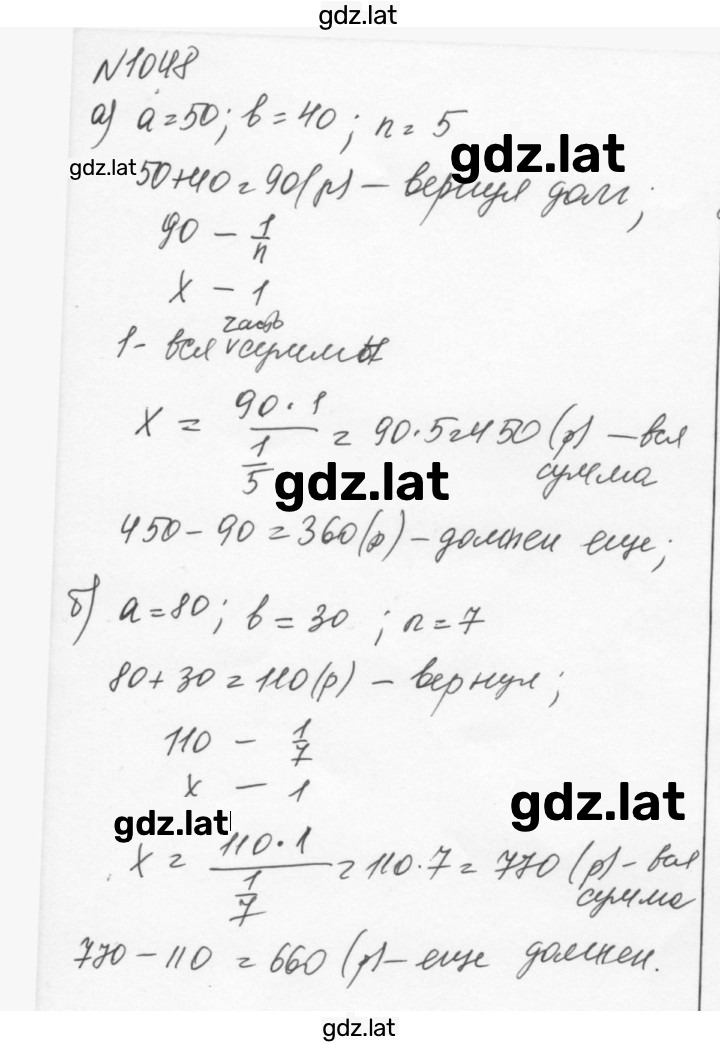 gdz.lat
№1048
а) a=50; b=40; n=5
gdz.lat
gdz.lat
50+40=90(р) – вернул долг;
90 – 1/n
x – 1
часть
1- вся ∨ суммы
x = 90·1/(1/5) = 90·5=450 (р) – вся
сумма
gdz.lat
450-90=360(р) – должен еще;
б) a=80; b=30; n=7
80+30=110(р) – вернул;
110 – 1/7
x – 1
gdz.lat
gdz.lat
x = 110·1/(1/7) = 110·7=770 (р) – вся
сумма
770-110=660 (р) – еще должен.
gdz.lat